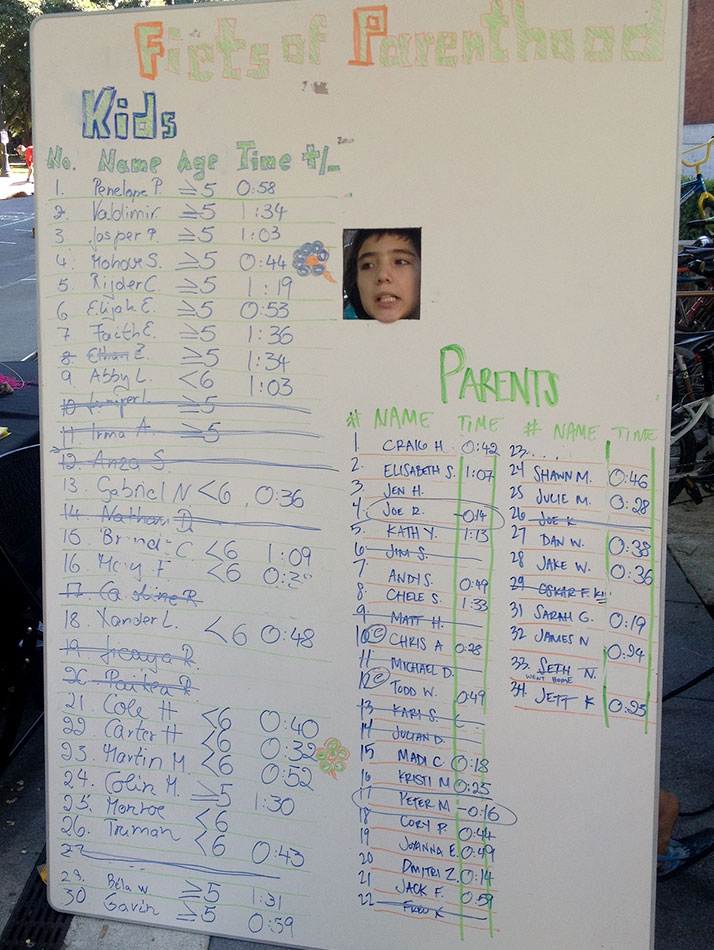 Fiets of Parenthood
Kids
No. Name Age Time +/-
1. Penelope P. ≥5 0:58
2. Valdimir ≥5 1:34
3 Jasper P. ≥5 1:03
4. Mohav S. ≥5 0:44
5. Rijder C. ≥5 1:19
6 Elijah E. ≥5 0:53
7 Faith E. ≥5 1:36
8. Ethan E. ≥5 1:34
9 Abby L. <6 1:03
10 Juniper L. ≥5
11. Irma A. ≥5
12. Anza S.
13. Gabriel N <6 0:36
14. Nathan D
15 C <6 1:09
16. F <6
17.
18 Xander L. <6 0:48
19 R.
20 R
21 Cole H <6 0:40
22. Carter H <6 0:32
23. Martin M <6 0:52
24. Colin M. ≥5 1:30
25. Monroe <6
26. Truman <6 0:43
27
29. Béla W. ≥5 1:31
30 Gavin ≥5 0:59
PARENTS
# NAME TIME
1 CRAIG H. 0:42
2. ELISABETH S. 1:07
3. JEN H.
4. JOE R. 0:14
5. KATH Y. 1:13
6. JIM S.
7 ANDY S. 0:49
8. CHELE S. 1:33
9. MATT H.
10 © CHRIS A 0:28
11 MICHAEL D.
12 © TODD W. 0:49
13 KARI S.
14 JULIAN D.
15 MADI C 0:18
16 KRISTI M 0:25
17 PETER M 0:16
18 CORY P. 0:44
19 JOYANNA E. 0:49
20 DMITRI Z. 0:14
21 JACK F. 0:59
22 FRED K
# NAME TIME
23.....
24 SHAWN M. 0:46
25 JULIE M. 0:28
26 JOE K
27 DAN W. 0:38
28 JAKE W. 0:36
29 OSKAR F K
31 SARAH G. 0:19
32 JAMES N 0:24
33. SETH N.
WENT HOME
34. JEFF K 0:25